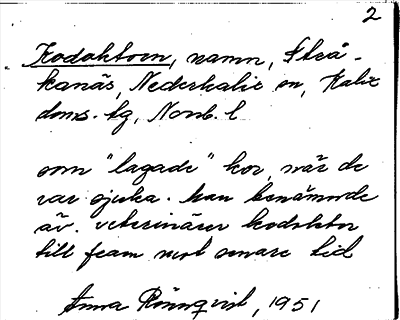 2
Kodoktorn, namn, Strå-
kanäs, Nederkalix sn, Kalix
doms. tg, Norrb. l
som "lagade" kor, när de
var sjuka. han benämnde
äv. veterinären kodoktor
till fram mot senare tid
Anna Rönnqvist, 1951